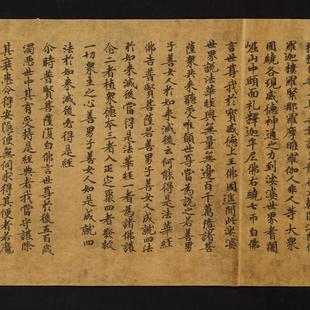 羅迦樓羅緊那羅摩睺羅伽人非人等大衆
圍繞各現威德神通之力到娑婆世界耆闍
崛山中頭面礼釋迦牟尼佛右繞七帀白佛
言世尊我於寶威德上王佛國遥聞此娑婆
世界說法華經與無量無邊百千萬億諸菩
薩衆共來聽受唯願世尊當為說之若善男
子善女人於如來滅後云何能得是法華經
佛告普賢菩薩若善男子善女人成就四法
於如來滅後當得是法華經一者為諸佛護
念二者植衆德本三者入正定聚四者發救
一切衆生之心善男子善女人如是成就四
法於如來滅後必得是經
尒時普賢菩薩復白佛言世尊於後五百歲
濁惡世中其有受持是經典者我當守護除
其衰患令得安隱使無伺求得其便者若魔